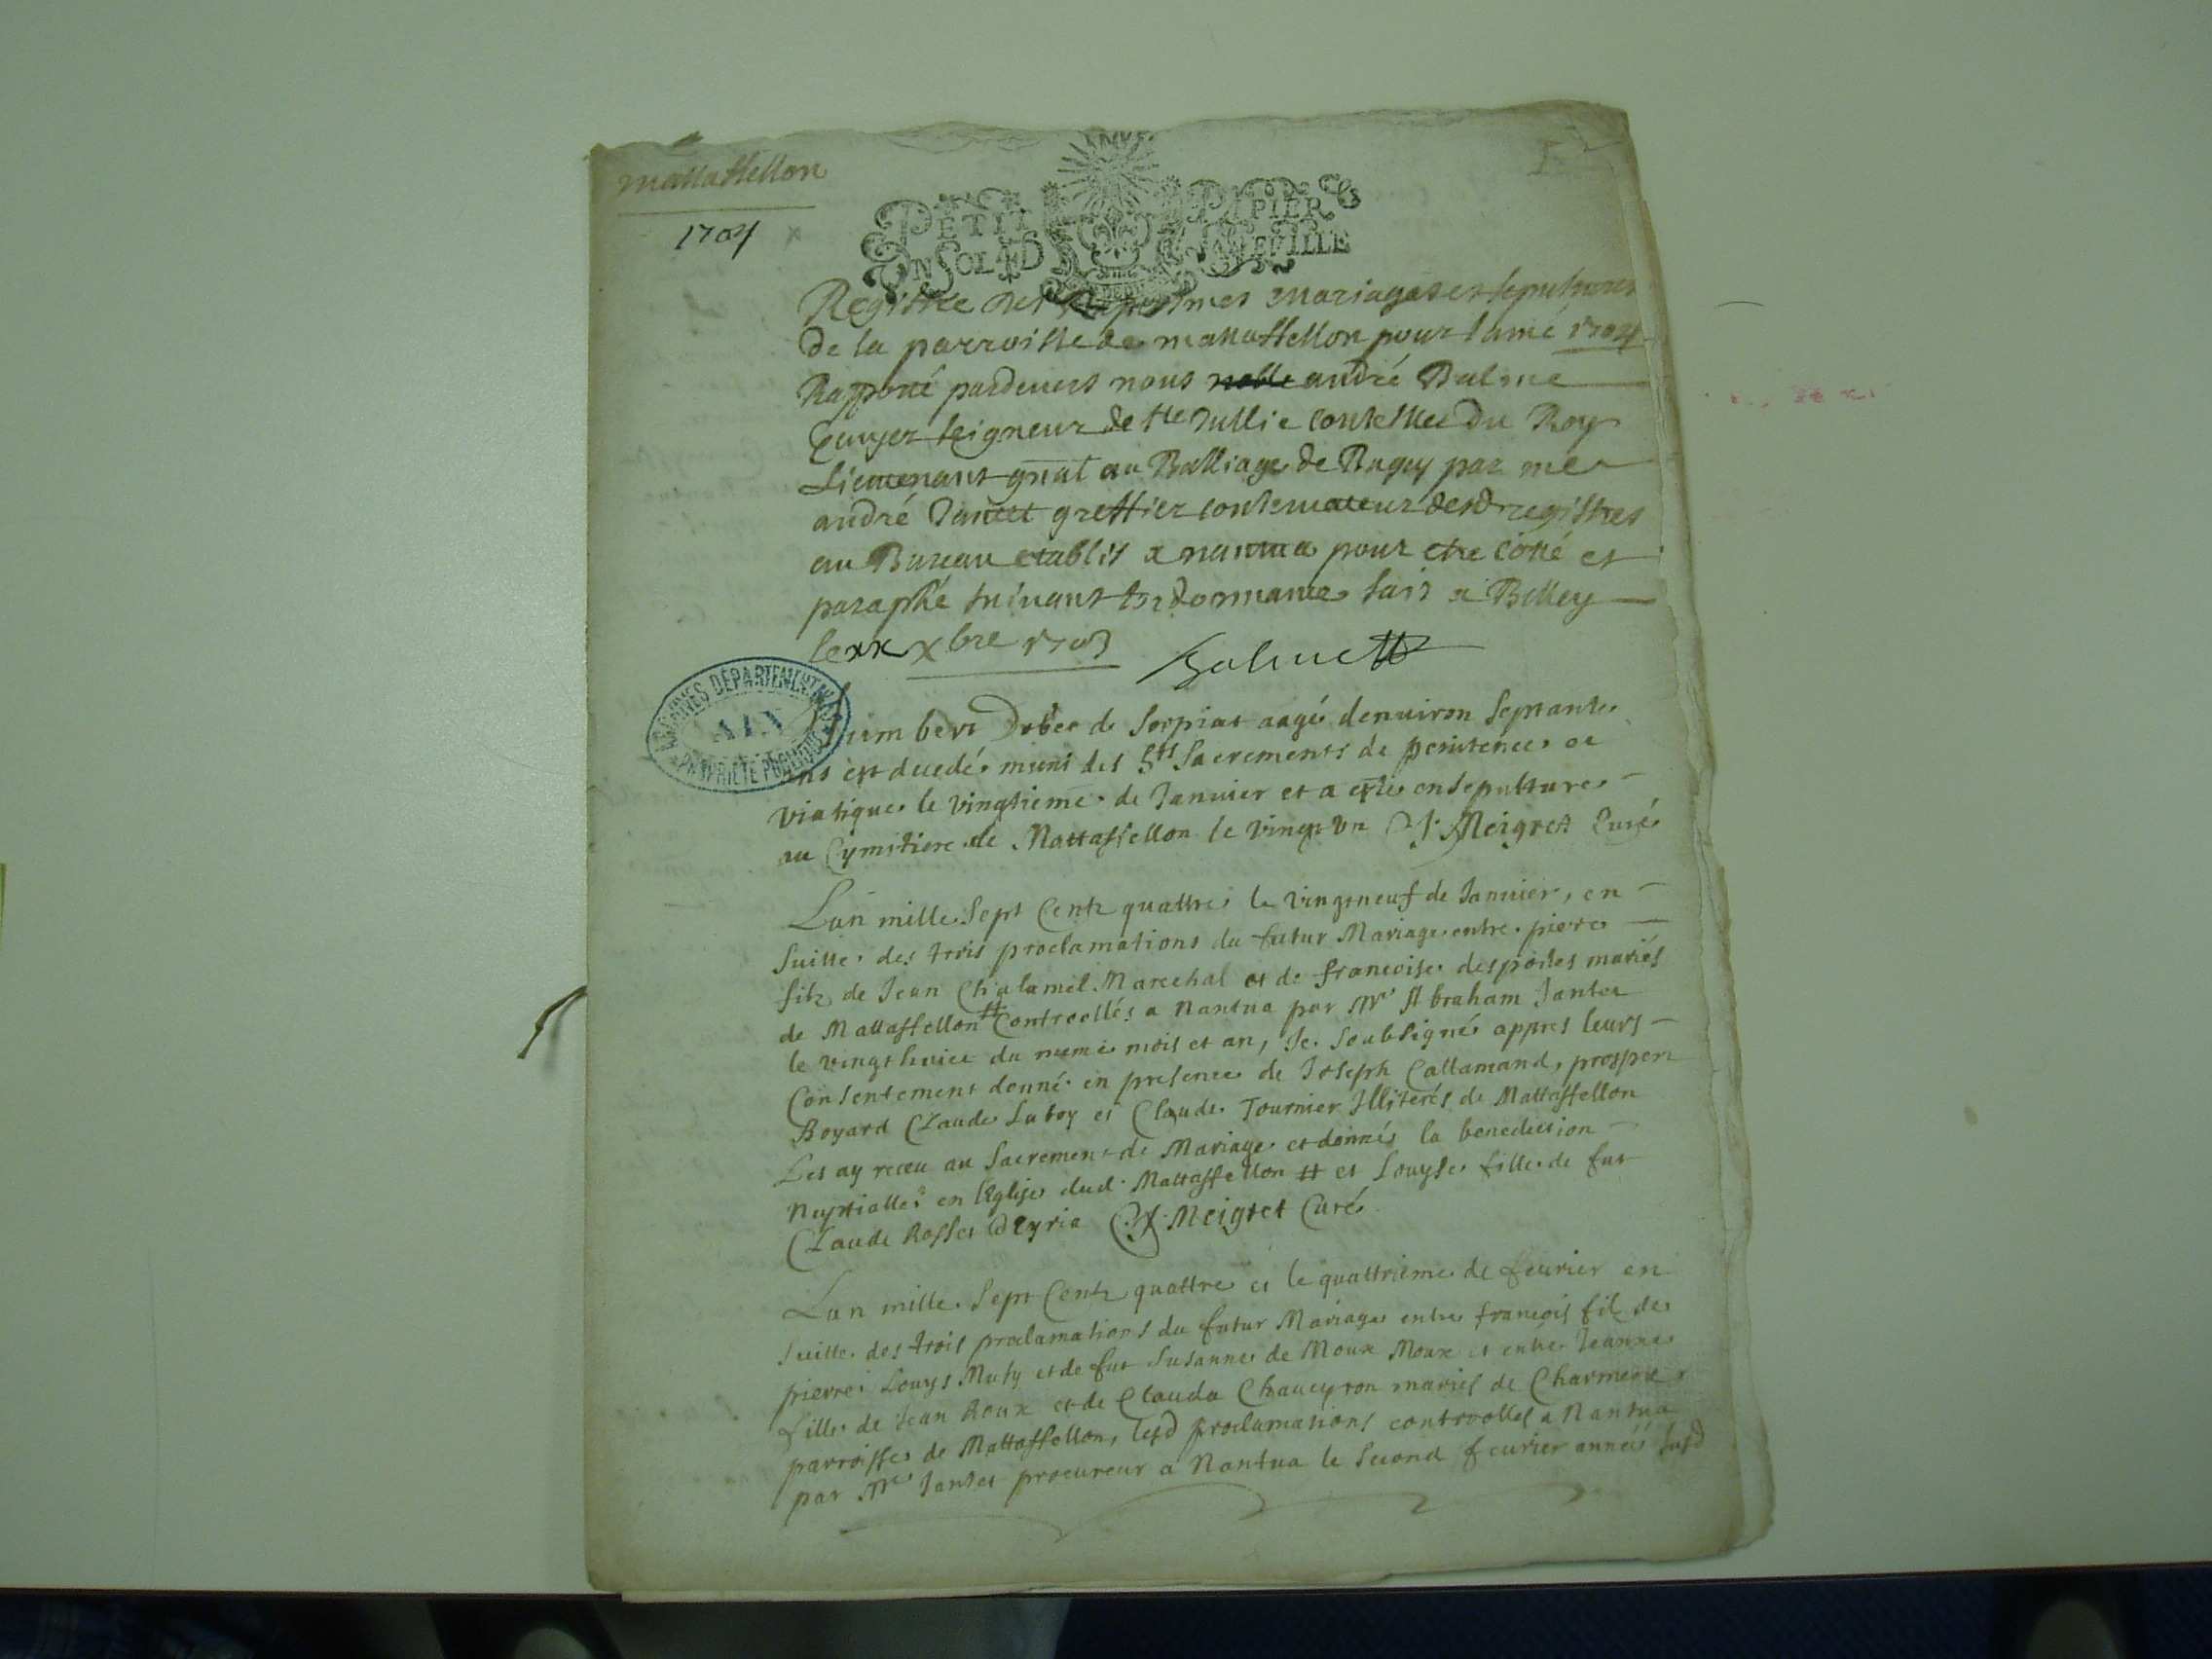 mattaffellon
1704
PETIT PAPIER
UN SOL 4 D LA FEUILLE
Registre des Baptesmes mariages et sepultures
de la parroisse de mattaffellon pour l'anné 1704
Rapporté pardevers nous noble andré Balme
Ecuyer seigneur de Ste Jullie conseiller du Roy
Lieutenant gnal au Balliage de Bugey par me
andré Jantet greffier conservateur desd registres
au Bureau etablit a nantua pour etre cotté et
paraphé suivant l'ordonnance fait a Belley
le xx xbre 1703
ARCHIVES DEPARTEMENTALES
AIN
PROPRIETE PUBLIQUE
Humbert de Serpiat aagé denuiron Septante
ans est decedé muni des Sts Sacrements de penitence et
viatique le vingtieme de Januier et a esté ensepulturé
au Cymitiere de Mattaffellon le vingt vn Meigret Curé
Lan mille Sept Centz quattre le vingtneuf de Januier, en
suitte des trois proclamations du futur Mariage entre pierre
filz de Jean Chalamel Marechal et de francoise desportes mariés
de Mattaffellon # Controllés a Nantua par Mre Abraham Jantet
le vingt huict du meme mois et an, Je Soubsigné appres leurs
Consentement donné en presence de Joseph Callamand, prosper
Boyard Claude Luboy et Claude Tournier Illiterés de Mattaffellon
Les ay receu au Sacrement de Mariage et donné la benediction
Neptialle en l'Eglise dud. Mattaffellon # et Louyse fille de fut
Claude Rosset d'Eyria Meigret Curé
Lan mille Sept Centz quattre et le quattrieme de feurier en
suitte des trois proclamations du futur Mariage entre francois filz de
pierre Louys Muty et de fut Susanne de Moux Moux et entre Jeanne
fille de Jean Roux et de Clauda Chaueyron mariés de Charmene
parroisse de Mattaffellon, lesd proclamations controlles a Nantua
par Mre Jantet procureur a Nantua le Second feurier année susd